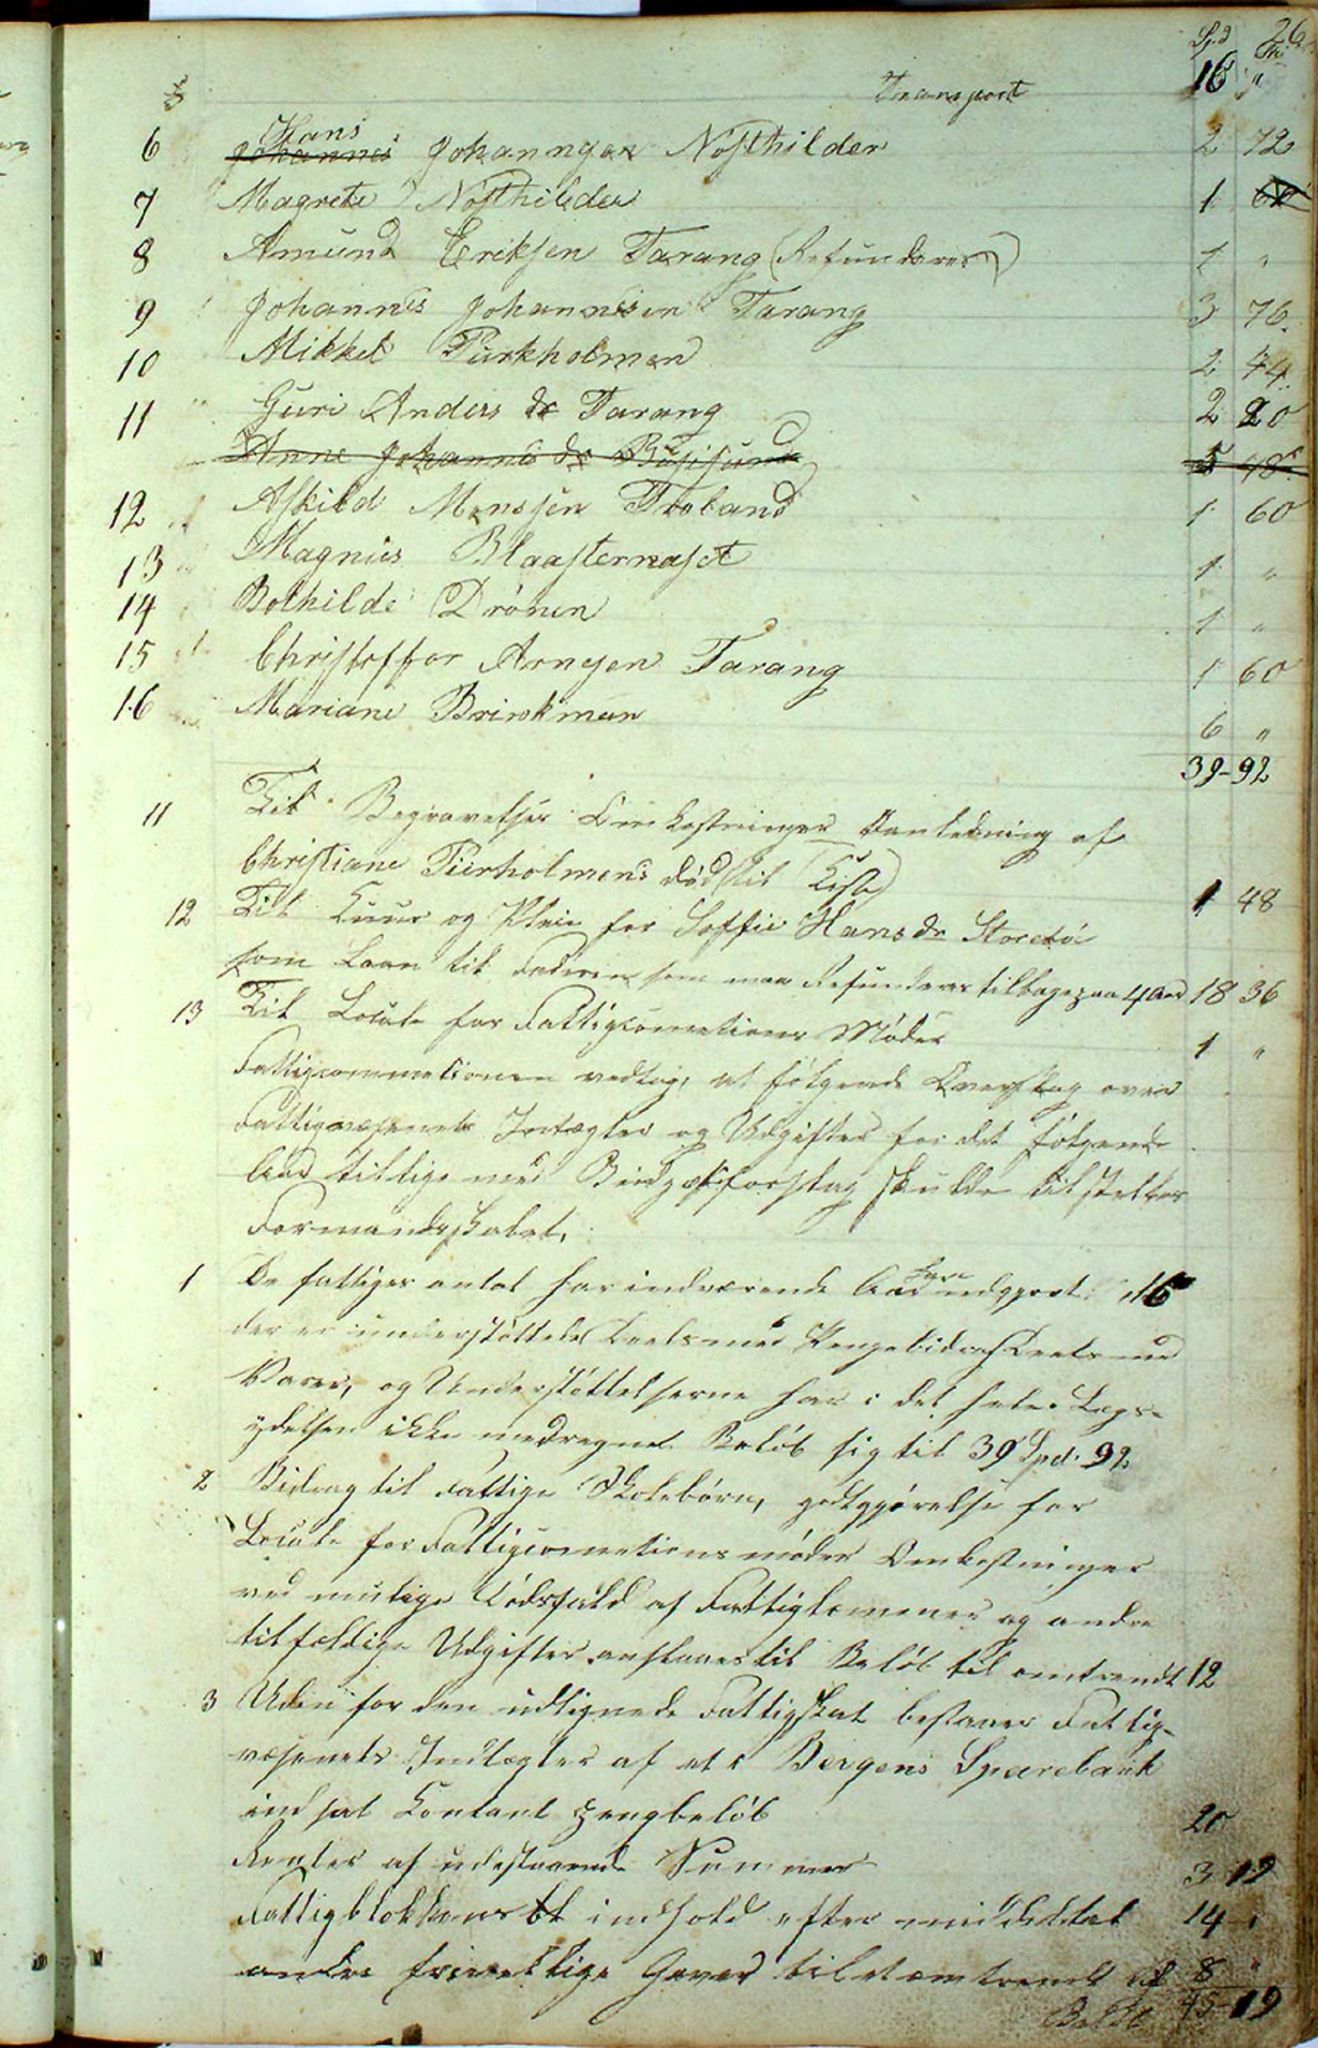 26
Spd Sk
Transport 16 "
Hans
6 Johannes Johannesen Nøsthilder 2 72
7 Magrete Nøsthilder 1 60
8 Amund Eriksen Tarang (Refunderes) 1 "
9 Johannes Johannesen Tarang 3 76
10 Mikkel Purkholmen 2 44
11 Guri Anders dr Tarang 2 20
Anne Johannes dr Bøsisund 5 48
12 Askild Monssen Troland 1 60
13 Magnus Blaasternaset 1 "
14 Bothilde Drönen 1 "
15 Christoffer Arnesen Tarang 1 60
16 Mariane Brinkman 6 "
39-92
11 Til Begravelses Omkostninger i Anledning af
Christiane Purholmens død (til Kiste) 1 48
12 Til Kuur og Pleie for Soffie Hans dr Storetø
som Laan til Faderen som maa Refunderes tilbage paa 4 Aar 18 36
13 Til Locale for Fattigcomitionens Møder 1 "
Fattigcommetionen vedtog, at følgende Overslag over
Fattigvæsenets Indtægter og Udgifter for det følgende
Aar tillige med Budgetforslag skulde tilstilles
Formandsskabet.
1 De fattiges antal har indeværende Aar udgjort 16
der er understøttede deels med Pengebidrag deels med
Varer, og Understøttelserne har i det hele Lægs-
ydelsen ikke medregnet Beløb sig til 39 Spd. 92
2 Bidrag til fattige Skolebörn, godtgjörelse for
Locale for Fattigcometions møder Omkostninger
ved mulige Dødsfald af Fattiglemmer og andre
tilfældige Udgifter anslaaes til Beløb til omtrendt 12
3 Uden for den udlignede Fattigskat bestaaer Fattig-
væsenets Indtægter af et i Bergens Sparebank
indsat Contant pengbeløb 20
Renter af udestaaende Summer 3 19
Fattigblokkens indhold efter middeltal 14 "
andre frivillige Gaver til et omtrendt af 8 "
Beløb 45-19